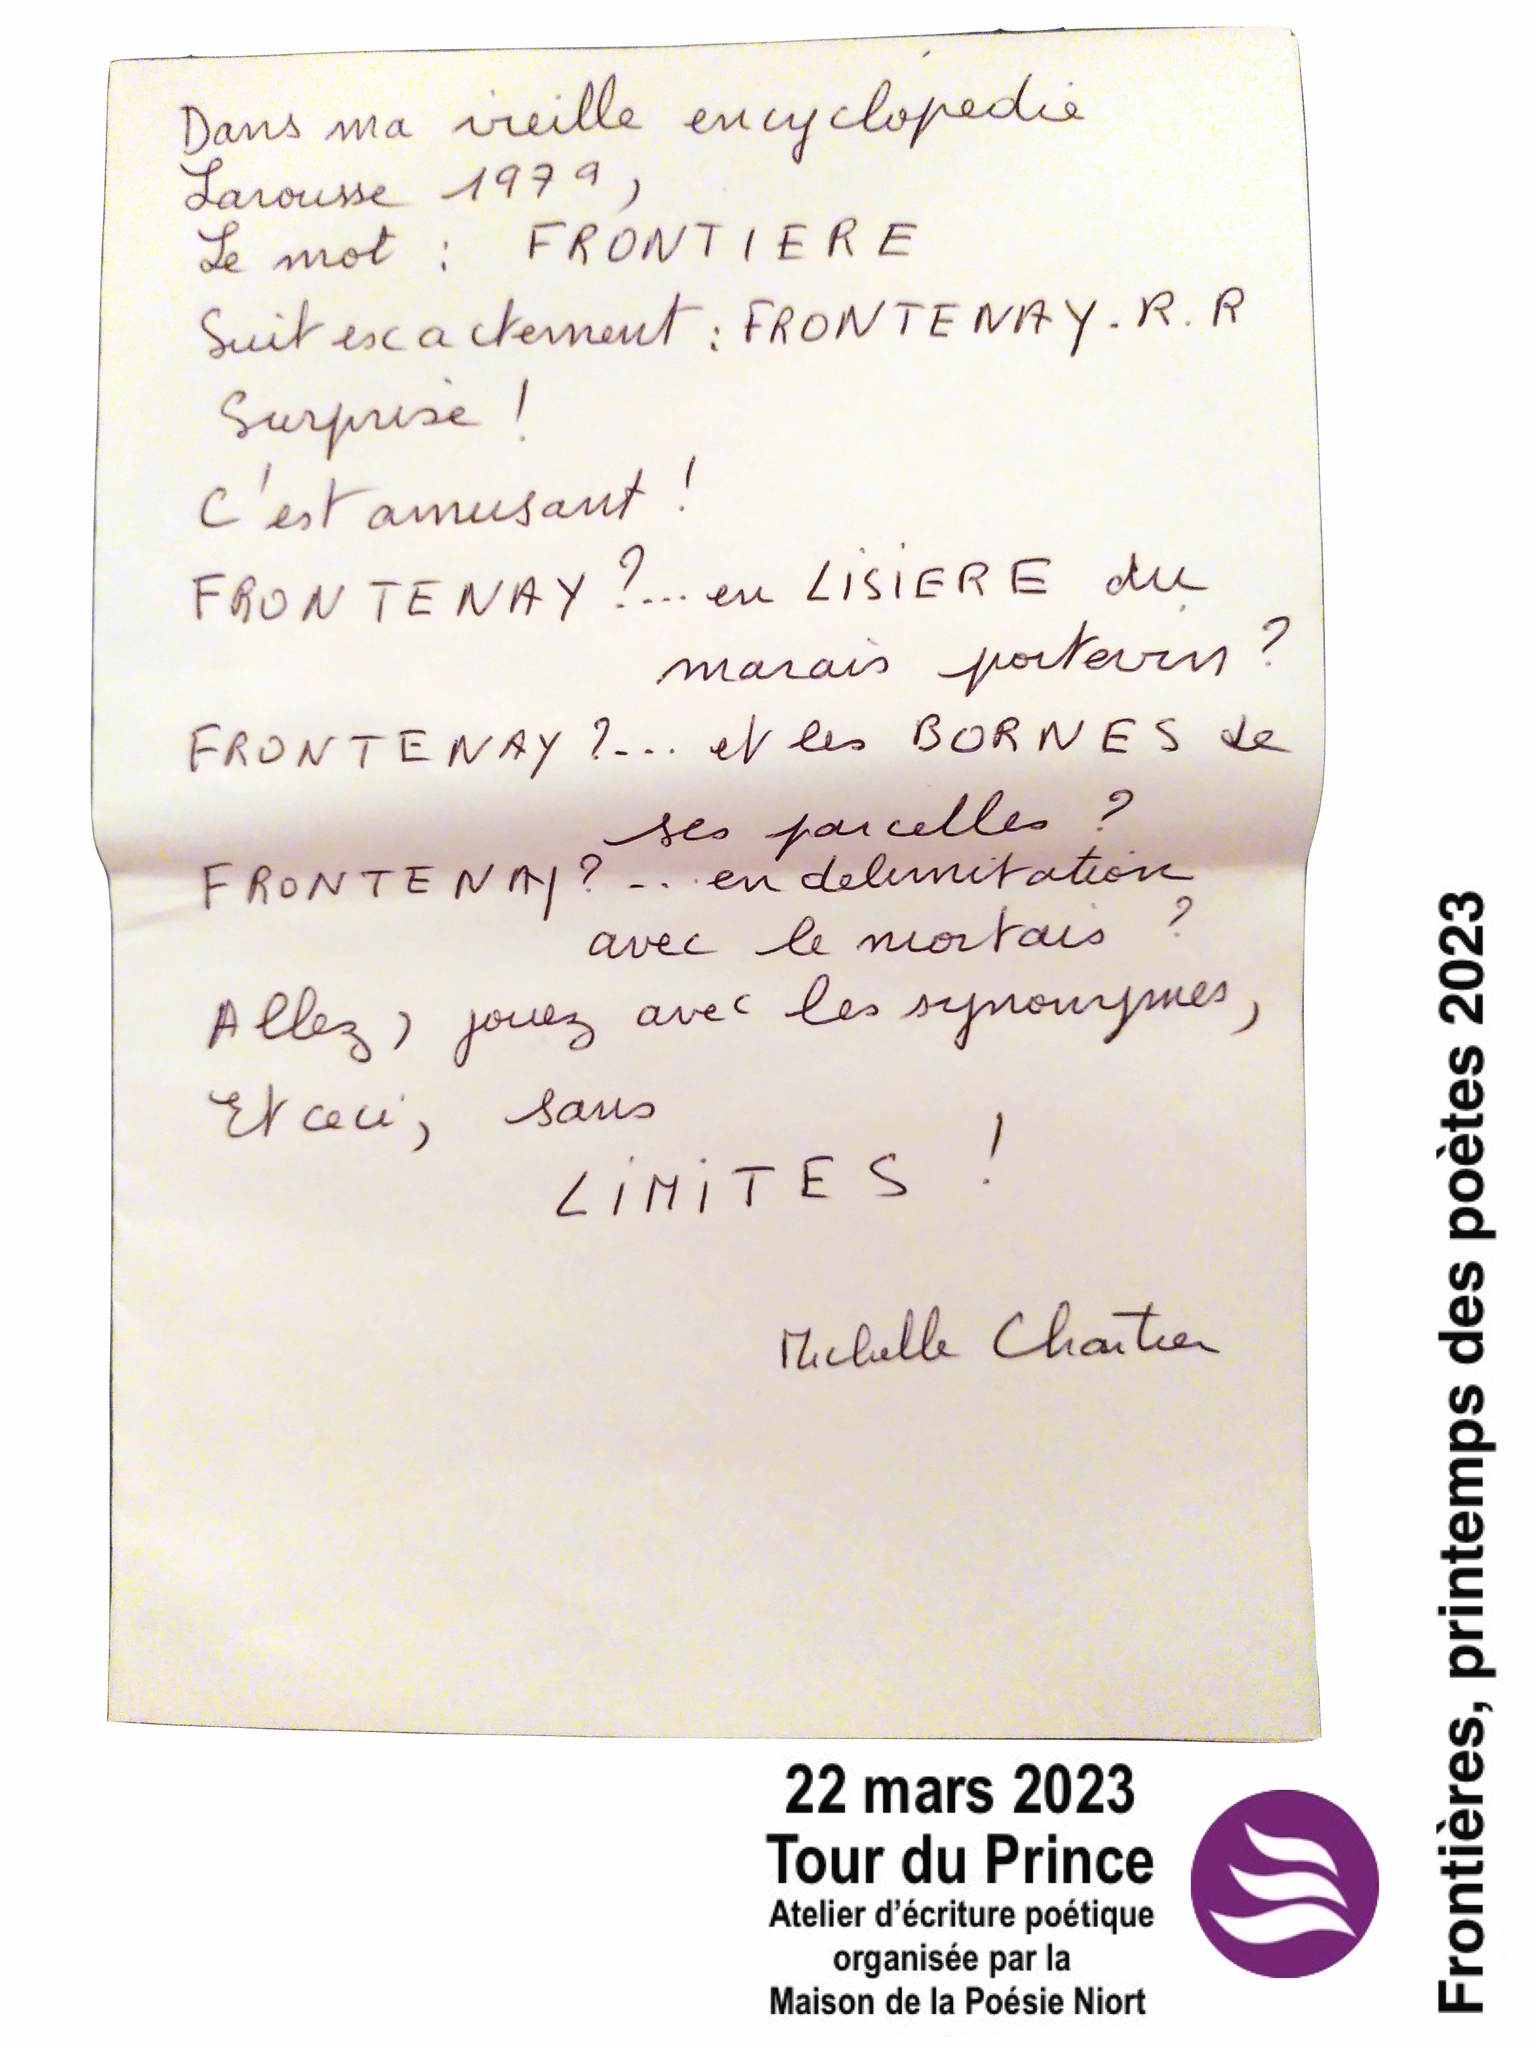 Dans ma vieille encyclopédie
Larousse 1979,
Le mot : FRONTIERE
Suit exactement : FRONTENAY. R. R
Surprise !
C'est amusant !
FRONTENAY ?... en LISIERE du
marais poitevin ?
FRONTENAY ?... et les BORNES de
ses parcelles ?
FRONTENAY ?... en delimitation
avec le niortais ?
Allez, jouez avec les synonymes,
Et ceci, sans
LIMITES !
Michelle Chartier
22 mars 2023
Tour du Prince
Atelier d'écriture poétique
organisée par la
Maison de la Poésie Niort
Frontières, printemps des poètes 2023